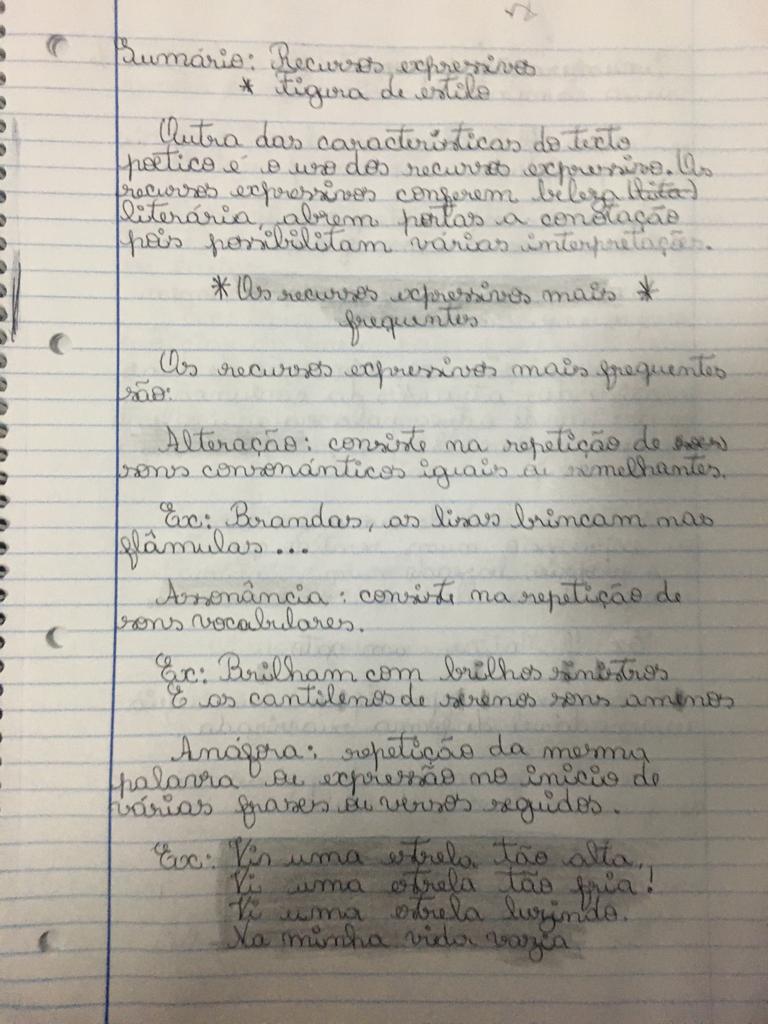 Sumário: Recursos expressivos
* figura de estilo
Outra das caracteristicas do texto
poético é o uso dos recursos expressivo. Os
recursos expressivos conferem beleza
literária, abrem portas a conotação
pois possibilitam várias interpretação.
* Os recursos expressivos mais *
frequentes
Os recursos expressivos mais frequentes
são:
Alteração: consiste na repetição de
sons consonánticos iguais ou semelhantes.
Ex: Brandas, as lisas brincam nas
flâmulas...
Assonância: consiste na repetição de
sons vocabulares.
Ex: Brilham com brilhos sinistros
E os cantilenos de serenos sons amenos
Anáfora: repetição da mesma
palavra ou expressão no inicio de
várias frases ou versos seguidos.
Ex: Vin uma estrela tão alta,
Vi uma estrela tão fria!
Vi uma estrela luzindo.
Na minha vida vazia